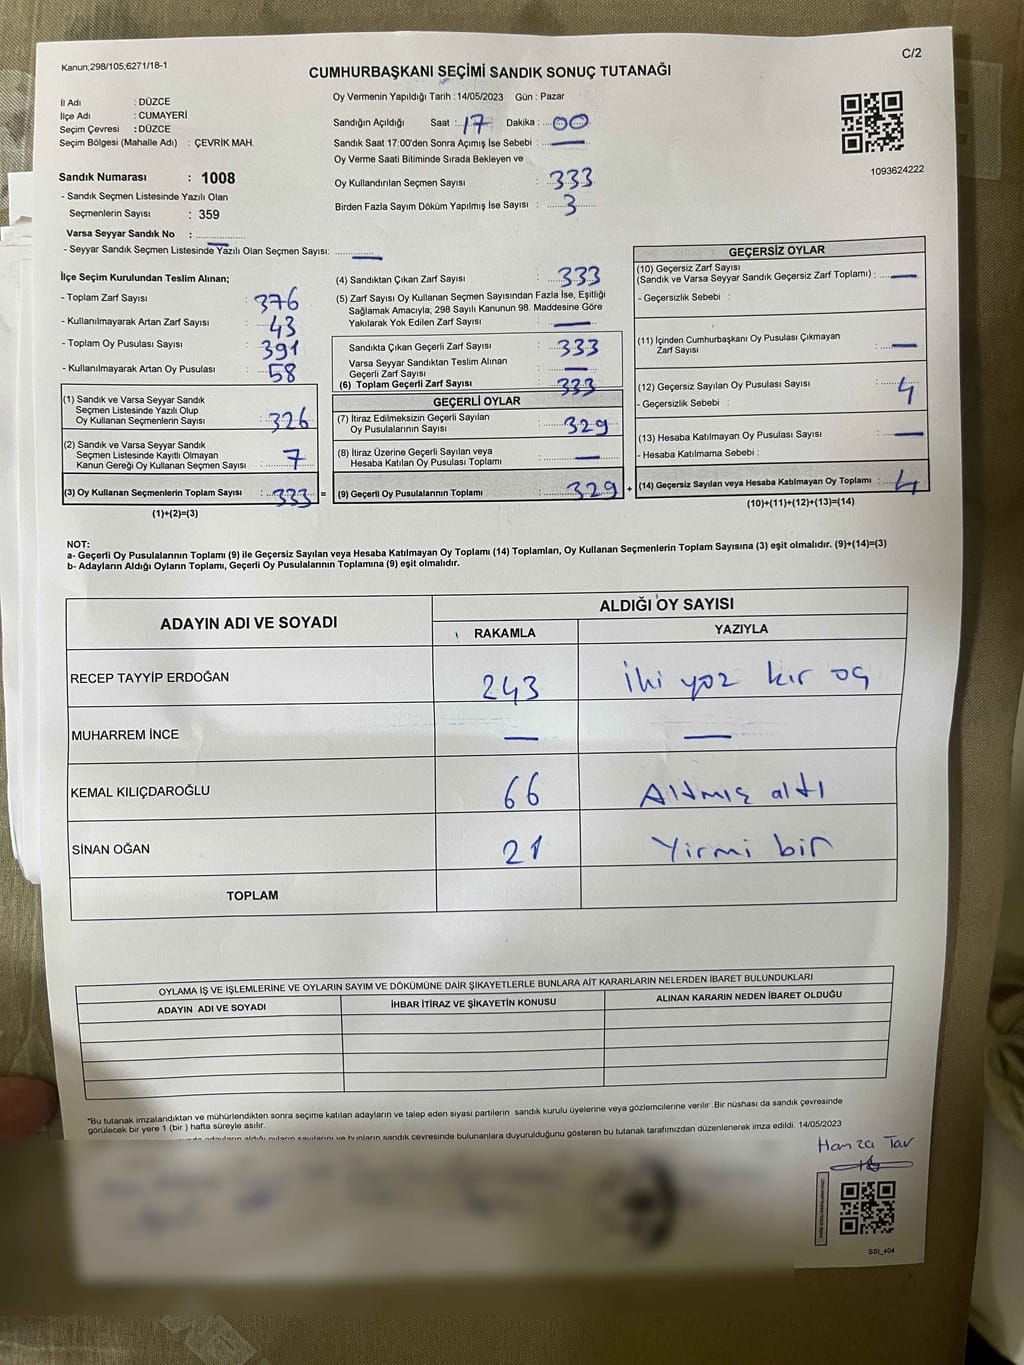 Kanun;298/105;6271/18-1
C/2
CUMHURBAŞKANI SEÇİMİ SANDIK SONUÇ TUTANAĞI
İl Adı : DÜZCE
İlçe Adı : CUMAYERİ
Seçim Çevresi : DÜZCE
Seçim Bölgesi (Mahalle Adı) : ÇEVRİK MAH.
Sandık Numarası : 1008
- Sandık Seçmen Listesinde Yazılı Olan
Seçmenlerin Sayısı : 359
Varsa Seyyar Sandık No :
- Seyyar Sandık Seçmen Listesinde Yazılı Olan Seçmen Sayısı: —
Oy Vermenin Yapıldığı Tarih : 14/05/2023 Gün : Pazar
Sandığın Açıldığı Saat : 17 Dakika : 00
Sandık Saat 17:00'den Sonra Açımış İse Sebebi : —
Oy Verme Saati Bitiminde Sırada Bekleyen ve
Oy Kullandırılan Seçmen Sayısı : 333
Birden Fazla Sayım Döküm Yapılmış İse Sayısı : 3
1093624222
İlçe Seçim Kurulundan Teslim Alınan;
- Toplam Zarf Sayısı : 376
- Kullanılmayarak Artan Zarf Sayısı : 43
- Toplam Oy Pusulası Sayısı : 391
- Kullanılmayarak Artan Oy Pusulası : 58
(1) Sandık ve Varsa Seyyar Sandık
Seçmen Listesinde Yazılı Olup
Oy Kullanan Seçmenlerin Sayısı : 326
(2) Sandık ve Varsa Seyyar Sandık
Seçmen Listesinde Kayıtlı Olmayan
Kanun Gereği Oy Kullanan Seçmen Sayısı : 7
(3) Oy Kullanan Seçmenlerin Toplam Sayısı : 333 =
(1)+(2)=(3)
(4) Sandıktan Çıkan Zarf Sayısı : 333
(5) Zarf Sayısı Oy Kullanan Seçmen Sayısından Fazla İse, Eşitliği
Sağlamak Amacıyla; 298 Sayılı Kanunun 98. Maddesine Göre
Yakılarak Yok Edilen Zarf Sayısı : —
Sandıkta Çıkan Geçerli Zarf Sayısı : 333
Varsa Seyyar Sandıktan Teslim Alınan
Geçerli Zarf Sayısı : —
(6) Toplam Geçerli Zarf Sayısı : 333
GEÇERLİ OYLAR
(7) İtiraz Edilmeksizin Geçerli Sayılan
Oy Pusulalarının Sayısı : 329
(8) İtiraz Üzerine Geçerli Sayılan veya
Hesaba Katılan Oy Pusulası Toplamı : —
(9) Geçerli Oy Pusulalarının Toplamı : 329 +
GEÇERSİZ OYLAR
(10) Geçersiz Zarf Sayısı
(Sandık ve Varsa Seyyar Sandık Geçersiz Zarf Toplamı) : —
- Geçersizlik Sebebi :
(11) İçinden Cumhurbaşkanı Oy Pusulası Çıkmayan
Zarf Sayısı : —
(12) Geçersiz Sayılan Oy Pusulası Sayısı : 4
- Geçersizlik Sebebi :
(13) Hesaba Katılmayan Oy Pusulası Sayısı : —
- Hesaba Katılmama Sebebi :
(14) Geçersiz Sayılan veya Hesaba Katılmayan Oy Toplamı : 4
(10)+(11)+(12)+(13)=(14)
NOT:
a- Geçerli Oy Pusulalarının Toplamı (9) ile Geçersiz Sayılan veya Hesaba Katılmayan Oy Toplamı (14) Toplamları, Oy Kullanan Seçmenlerin Toplam Sayısına (3) eşit olmalıdır. (9)+(14)=(3)
b- Adayların Aldığı Oyların Toplamı, Geçerli Oy Pusulalarının Toplamına (9) eşit olmalıdır.
ADAYIN ADI VE SOYADI
ALDIĞI OY SAYISI
RAKAMLA YAZIYLA
RECEP TAYYİP ERDOĞAN 243 İki yöz kır oç
MUHARREM İNCE — —
KEMAL KILIÇDAROĞLU 66 Altmış altı
SİNAN OĞAN 21 Yirmi bir
TOPLAM
OYLAMA İŞ VE İŞLEMLERİNE VE OYLARIN SAYIM VE DÖKÜMÜNE DAİR ŞİKAYETLERLE BUNLARA AİT KARARLARIN NELERDEN İBARET BULUNDUKLARI
ADAYIN ADI VE SOYADI İHBAR İTİRAZ VE ŞİKAYETİN KONUSU ALINAN KARARIN NEDEN İBARET OLDUĞU
"Bu tutanak imzalandıktan ve mühürlendikten sonra seçime katılan adayların ve talep eden siyasi partilerin sandık kurulu üyelerine veya gözlemcilerine verilir .Bir nüshası da sandık çevresinde
görülecek bir yere 1 (bir ) hafta süreyle asılır.
adayların aldığı oyların sayılarını ve bunların sandık çevresinde bulunanlara duyurulduğunu gösteren bu tutanak tarafımızdan düzenlenerek imza edildi. 14/05/2023
Hamza Tav
SSI_404